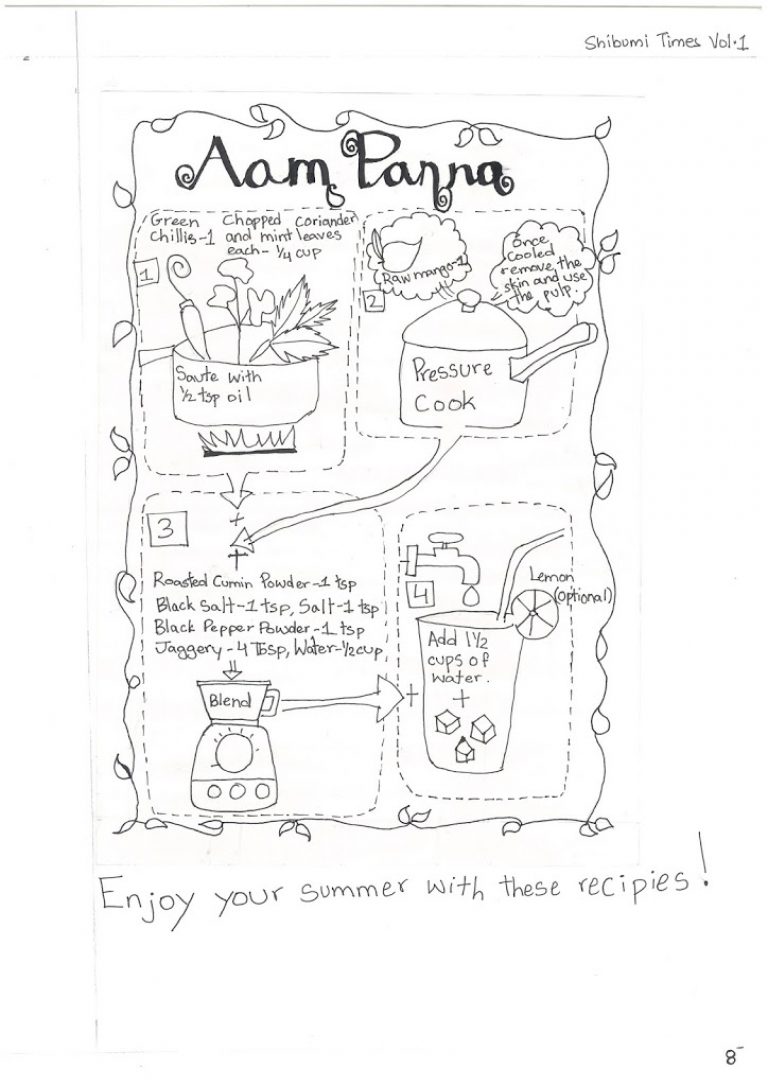 Shibumi Times Vol.1
Aam Panna
Green Chopped Coriander
Chillis-1 and mint leaves
each- 1/4 cup
1
Saute with
1/2 tsp oil
2
Raw mango-1
Once
Cooled
remove the
skin and use
the pulp.
Pressure
Cook
3
+
+
Roasted Cumin Powder-1 tsp
Black Salt-1 tsp, Salt-1 tsp
Black Pepper Powder-1 tsp
Jaggery-4 Tbsp, Water-1/2 cup
Blend
+
4
Lemon
(optional)
Add 1 1/2
cups of
water.
+
Enjoy your summer with these recipies!
8